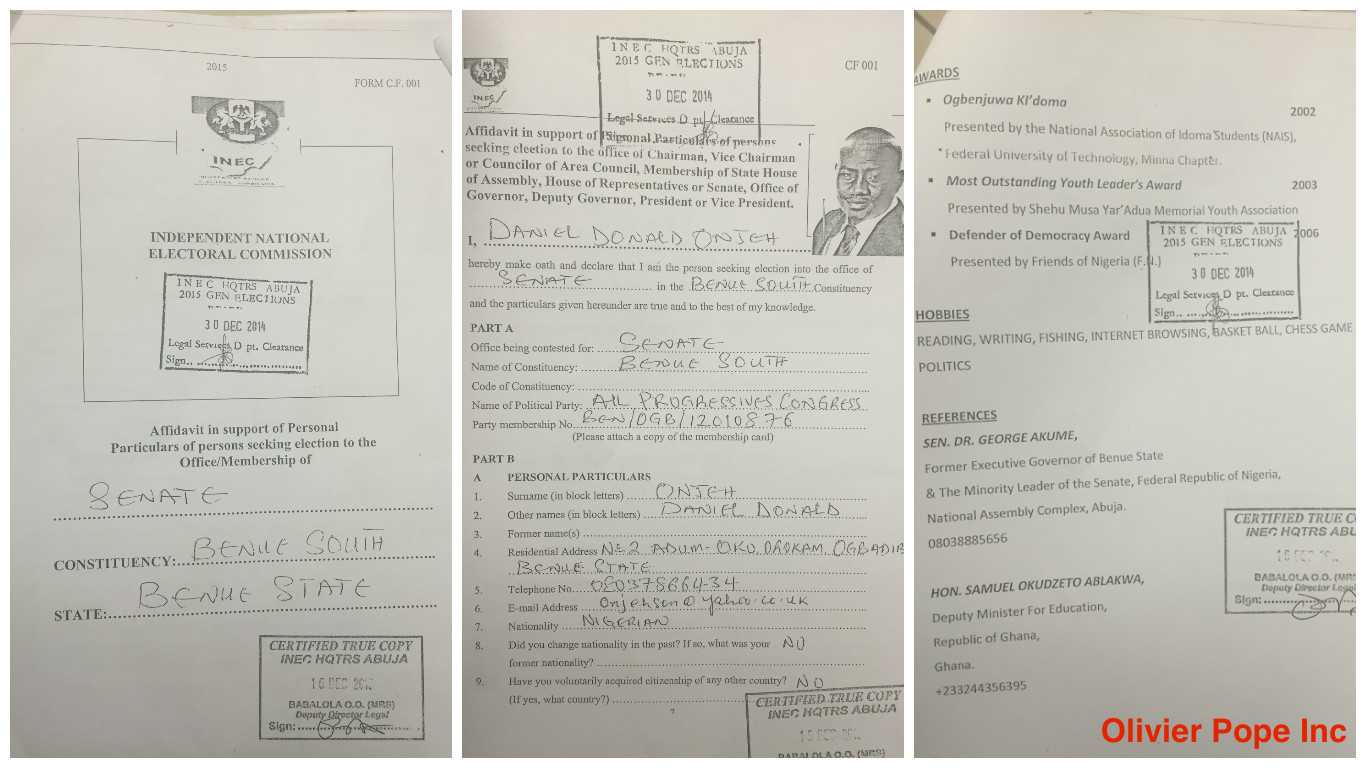 2015
FORM C.F. 001
INEC
INDEPENDENT NATIONAL
ELECTORAL COMMISSION
INEC HQTRS ABUJA
2015 GEN ELECTIONS
30 DEC 2014
Legal Services D pt. Clearance
Sign..
Affidavit in support of Personal
Particulars of persons seeking election to the
Office/Membership of
SENATE
CONSTITUENCY: BENUE SOUTH
STATE: BENUE STATE
CERTIFIED TRUE COPY
INEC HQTRS ABUJA
16 DEC
BABALOLA O.O. (MRS)
Deputy Director Legal
Sign:
INEC HQTRS ABUJA
2015 GEN ELECTIONS
30 DEC 2014
Legal Services D pt. Clearance
CF 001
INEC
Affidavit in support of Personal Particulars of persons
seeking election to the office of Chairman, Vice Chairman
or Councilor of Area Council, Membership of State House
of Assembly, House of Representatives or Senate, Office of
Governor, Deputy Governor, President or Vice President.
I, DANIEL DONALD ONJEH
hereby make oath and declare that I am the person seeking election into the office of
SENATE in the BENUE SOUTH Constituency
and the particulars given hereunder are true and to the best of my knowledge.
PART A
Office being contested for: SENATE
Name of Constituency: BENUE SOUTH
Code of Constituency:
Name of Political Party: ALL PROGRESSIVES CONGRESS
Party membership No. BEN/OGB/12010876
(Please attach a copy of the membership card)
PART B
A PERSONAL PARTICULARS
1. Surname (in block letters) ONJEH
2. Other names (in block letters) DANIEL DONALD
3. Former name(s)
4. Residential Address No 2 ADUM-OKO, OROKAM, OGBADIB
BENUE STATE
5. Telephone No. 08037866434
6. E-mail Address onjehson@yahoo.co.uk
7. Nationality NIGERIAN
8. Did you change nationality in the past? If so, what was your NO
former nationality?
9. Have you voluntarily acquired citizenship of any other country? NO
(If yes, what country?)
CERTIFIED TRUE COPY
INEC HQTRS ABUJA
16 DEC
BABALOLA O.O. (MRS)
AWARDS
▪ Ogbenjuwa KI'doma 2002
Presented by the National Association of Idoma Students (NAIS),
Federal University of Technology, Minna Chapter.
▪ Most Outstanding Youth Leader's Award 2003
Presented by Shehu Musa Yar'Adua Memorial Youth Association
▪ Defender of Democracy Award 2006
Presented by Friends of Nigeria (F.N.)
INEC HQTRS ABUJA
2015 GEN ELECTIONS
30 DEC 2014
Legal Services D pt. Clearance
Sign..
HOBBIES
READING, WRITING, FISHING, INTERNET BROWSING, BASKET BALL, CHESS GAME
POLITICS
REFERENCES
SEN. DR. GEORGE AKUME,
Former Executive Governor of Benue State
& The Minority Leader of the Senate, Federal Republic of Nigeria,
National Assembly Complex, Abuja.
08038885656
HON. SAMUEL OKUDZETO ABLAKWA,
Deputy Minister For Education,
Republic of Ghana,
Ghana.
+233244356395
CERTIFIED TRUE C
INEC HQTRS ABU
BABALOLA O.O. (MRS
Deputy Director Lega
Sign:
Olivier Pope Inc